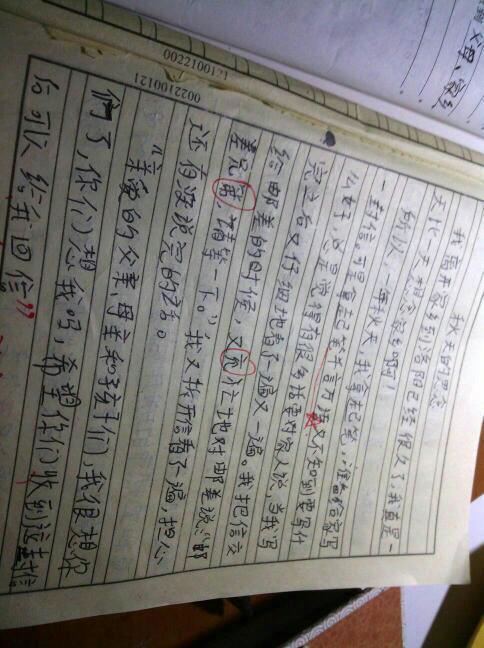 父母、家乡
0022100121
0022100121
秋天的思念
我离开家乡到洛阳已经很久了,我真是一
天比一天想念家乡啊!
所以一年秋天,我拿起笔,准备给家写
一封信。可是拿起笔千言万语又不知到要写什
么好,总是觉得有很多话要对家人说,当我写
完之后又仔细地看了一遍又一遍。我把信交
给邮差的时候,又忙地对邮差说:“邮
差兄,请等一下。”我又拆开信看了遍,担心
还有没说完的话。
“亲爱的父亲、母亲和孩子们,我很想你
们了,你们想我吗,希望你们收到这封信
后可以给我回信”